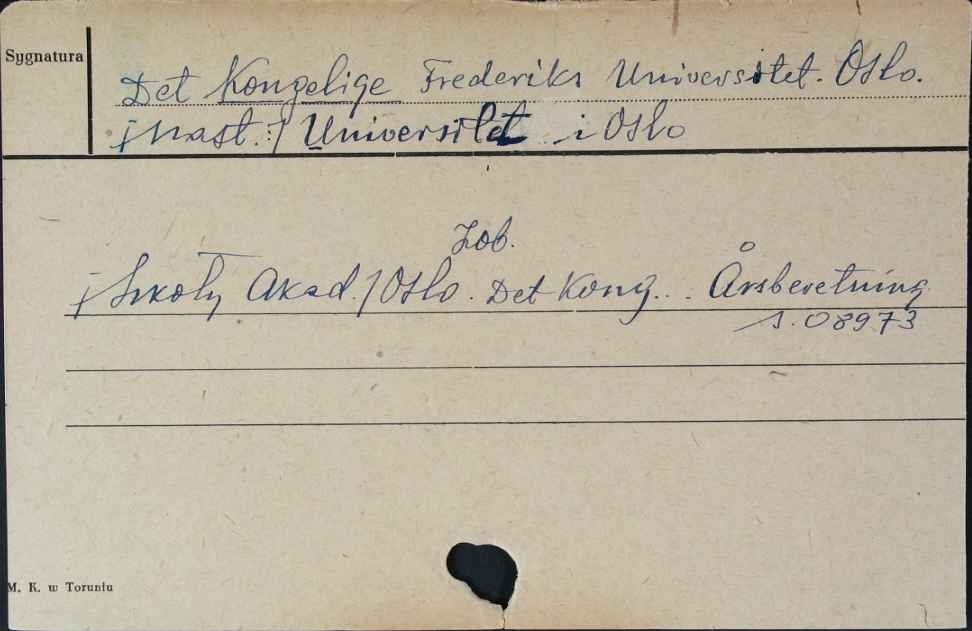 Sygnatura
Det Kongelige Frederiks Universitet. Oslo.
/nast.:/ Universitet i Oslo
Zob.
/Szkoły Akad./Oslo. Det Kong... Årsberetning
s. 08973
M. K. w Toruniu